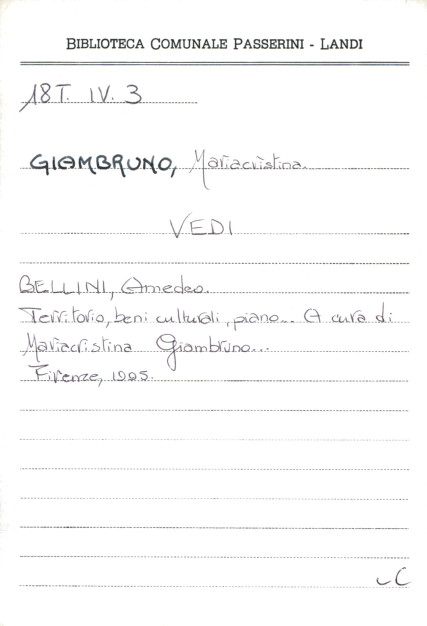 BIBLIOTECA COMUNALE PASSERINI - LANDI
18T. IV. 3
GIAMBRUNO, Mariacristina.
VEDI
BELLINI, Amedeo.
Territorio, beni culturali, piano... A cura di
Mariacristina Giambruno...
Firenze, 1995.